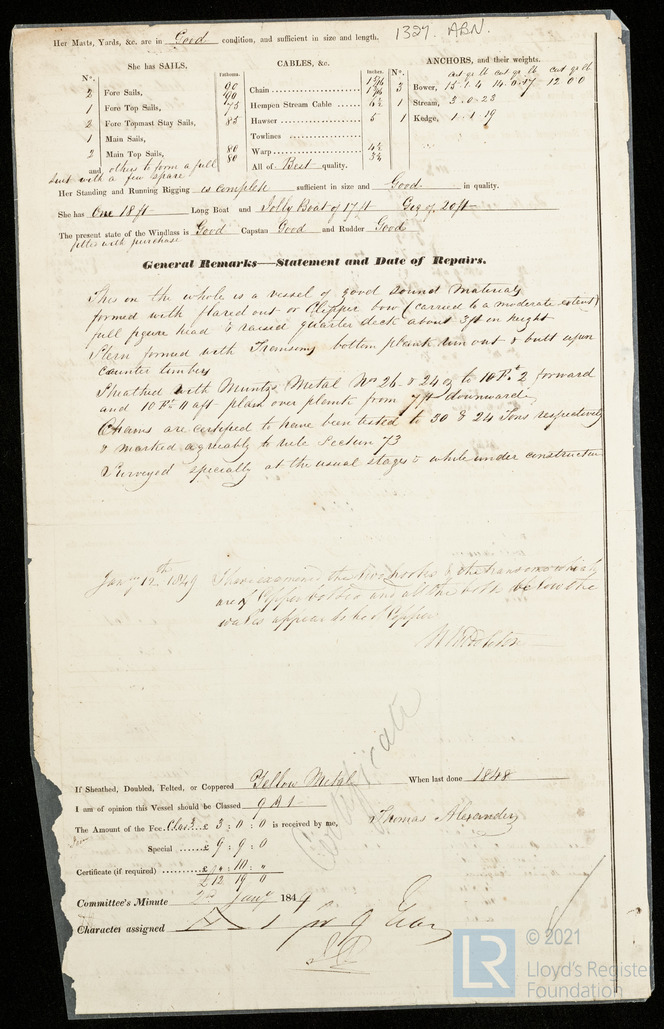 1327. ABN.
Her Masts, Yards, &c. are in Good condition, and sufficient in size and length.
She has SAILS.
CABLES, &c.
ANCHORS, and their weights.
N°.
Fathoms.
Inches.
N°.
cwt qr lb cwt qr lb cwt qr lb
2 Fore Sails, 90 90
Chain
3 Bower, 15.1.4 14.0.17 12.0.0
1 Fore Top Sails, 75
Hempen Stream Cable 6½
1 Stream, 3.0.23
2 Fore Topmast Stay Sails, 85
Hawser 5
1 Kedge, 1.1.19
1 Main Sails,
Towlines
2 Main Top Sails, 80 80
Warp 4½ 3¼
and others to form a full
suit with a few spare
All of Best quality.
Her Standing and Running Rigging is complete sufficient in size and Good in quality.
She has One 18 ft Long Boat and Jolly Boat of 17 ft Gig of 20 ft
The present state of the Windlass is Good Capstan Good and Rudder Good
fitted with purchase
General Remarks—Statement and Date of Repairs.
This on the whole is a vessel of good sound materials
formed with flared out or Clipper bow (carried to a moderate extent)
full figure head & raised quarter deck about 3 ft in height
Stern formed with Transoms bottom plank run out & butt upon
counter timbers
Sheathed with Muntz Metal Nos 26 & 24 oz to 10 Ft 2 forward
and 10 Ft 11 aft plain over plank from 7 ft downwards
Chains are certified to have been tested to 30 & 24 Tons respectively
& marked agreeably to rule Section 73
Surveyed specially at the usual stages & while under construction
Jany 12th 1849 I have examined the hooks & the transoms which
are Copper bolted and all the bolts below the
wales appear to be of Copper
Certificate
If Sheathed, Doubled, Felted, or Coppered Yellow Metal When last done 1848
I am of opinion this Vessel should be Classed 9 A 1
The Amount of the Fee. Class £ 3 : 0 : 0 is received by me, Thomas Alexander
Special £ 9 : 9 : 0
Certificate (if required) £ " : 10 : "
£12 19 0
Committee's Minute 2nd Jany 1849
Character assigned A 1 for 9 Years
LR
© 2021
Lloyd's Register
Foundation